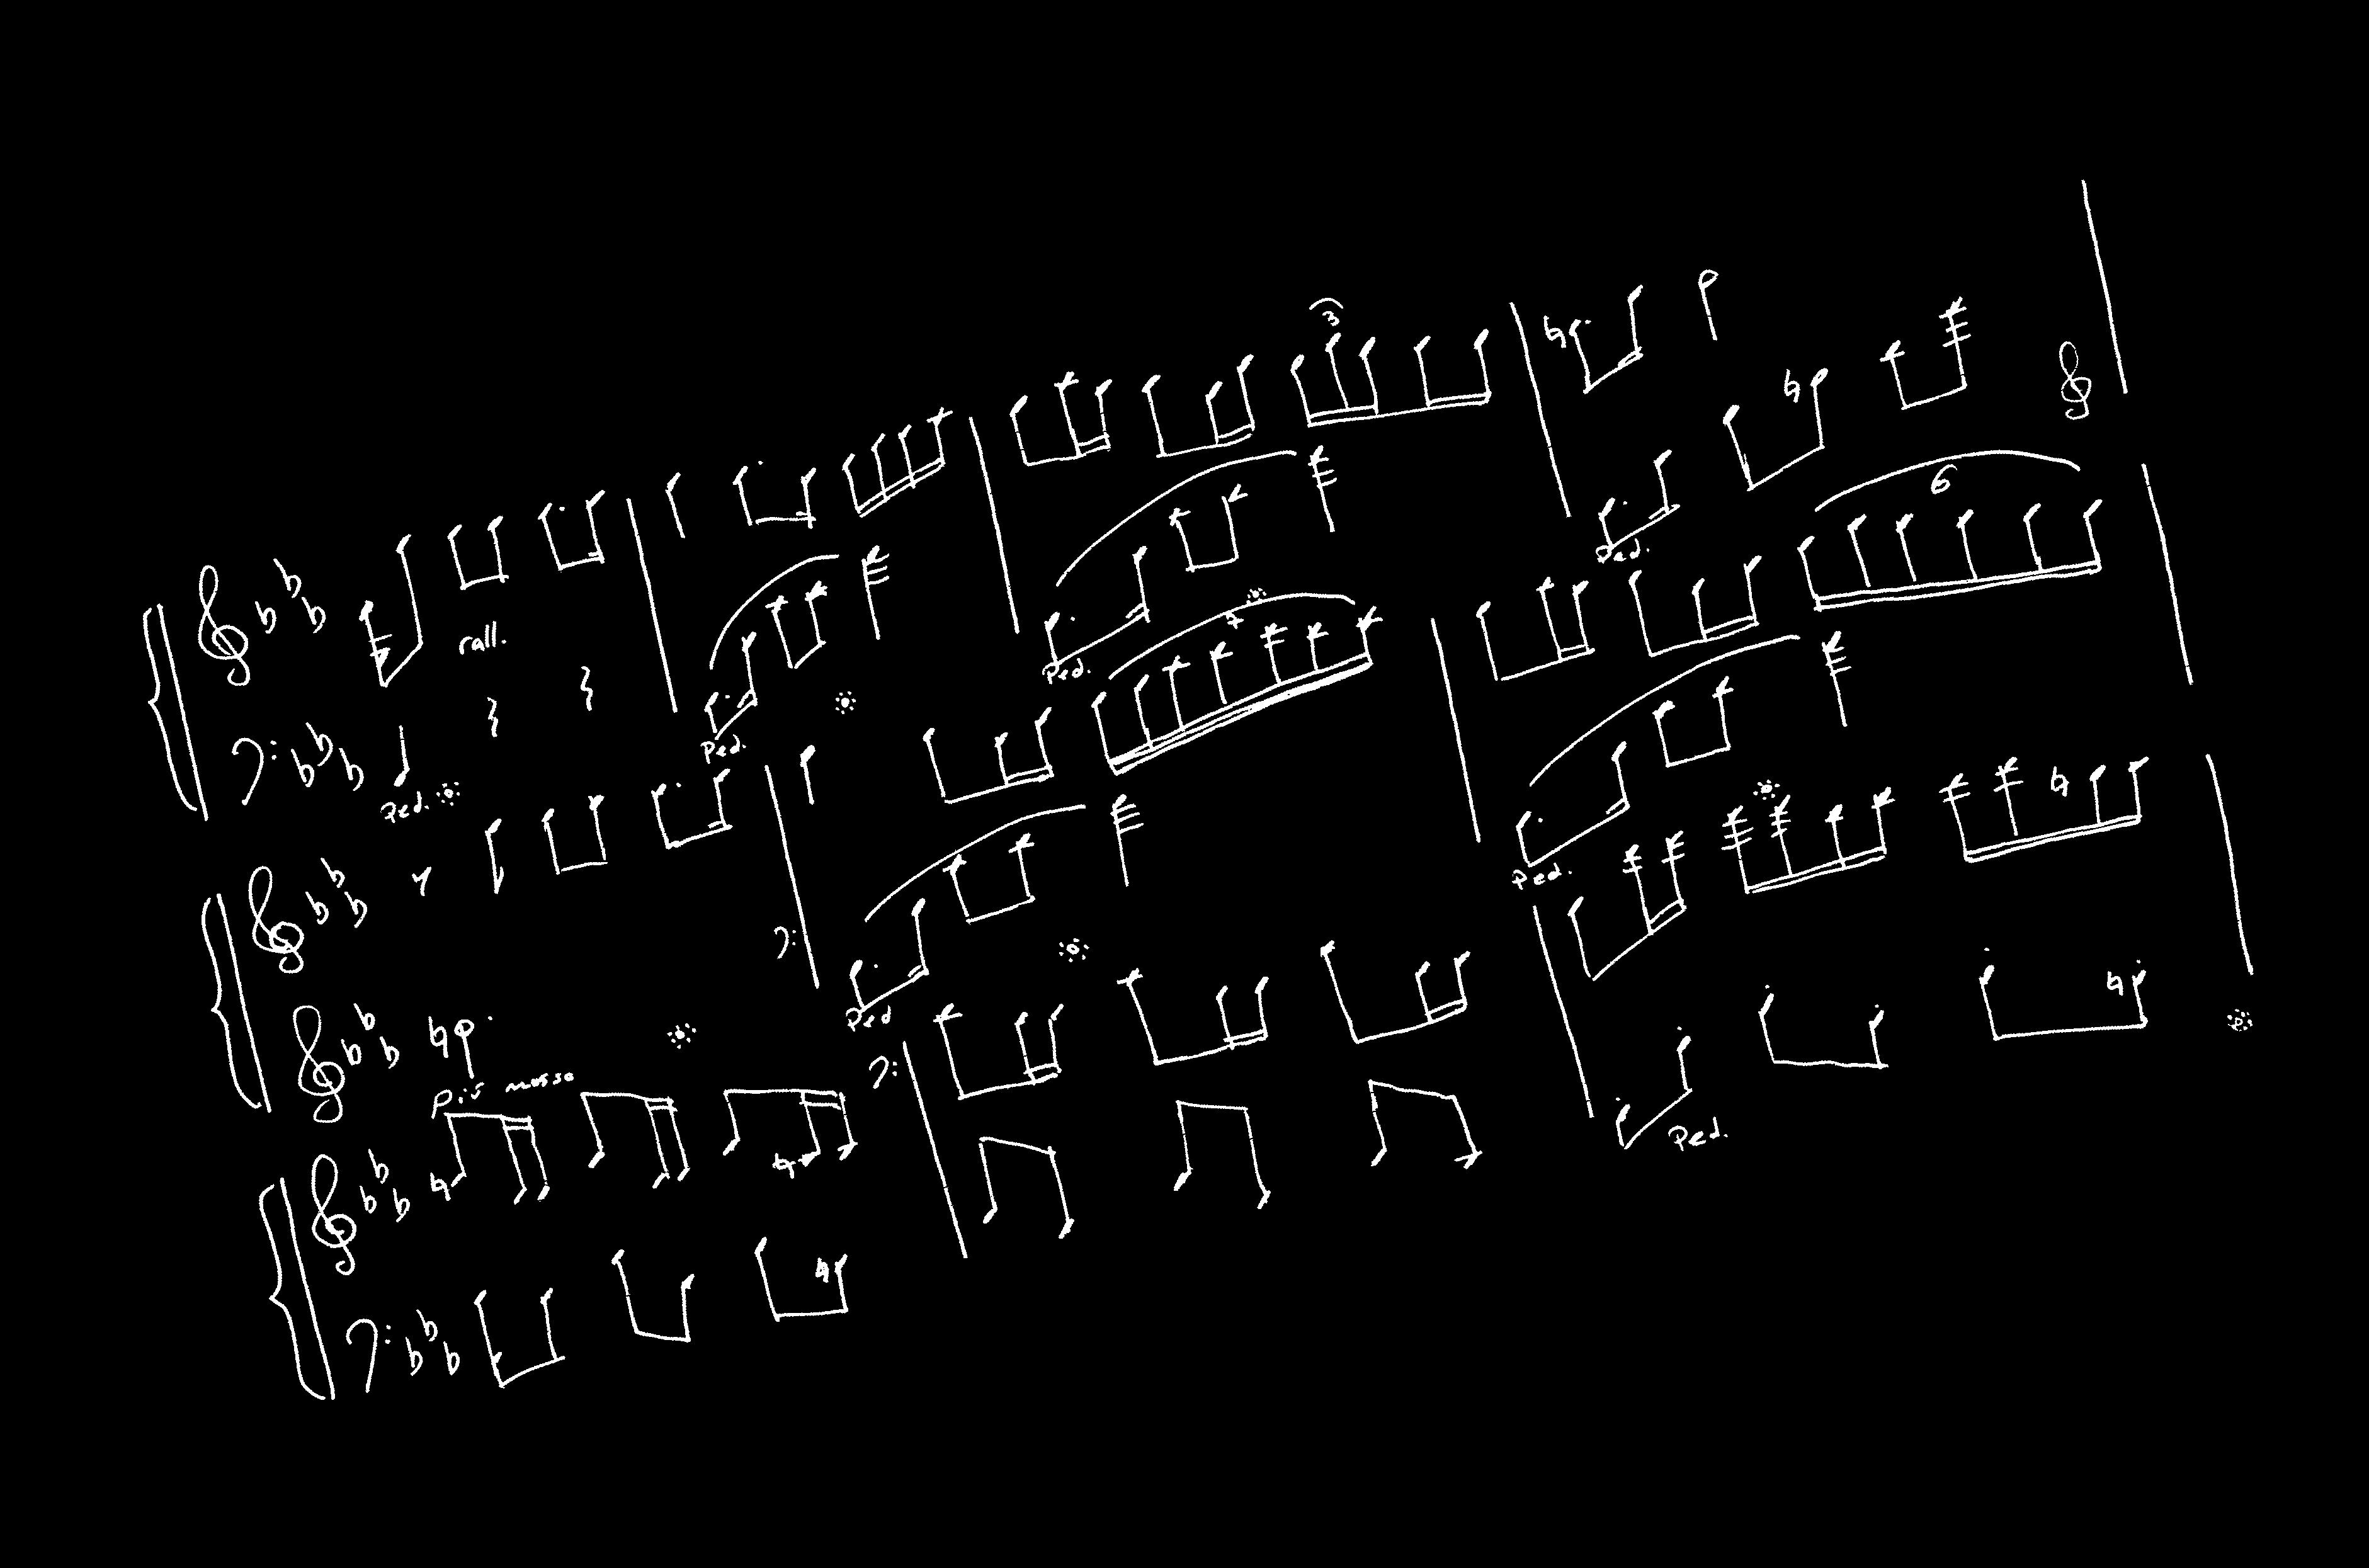 3
rall.
Ped.
Ped.
Ped.
Ped.
7
6
Ped
Ped.
Più mosso
Ped.